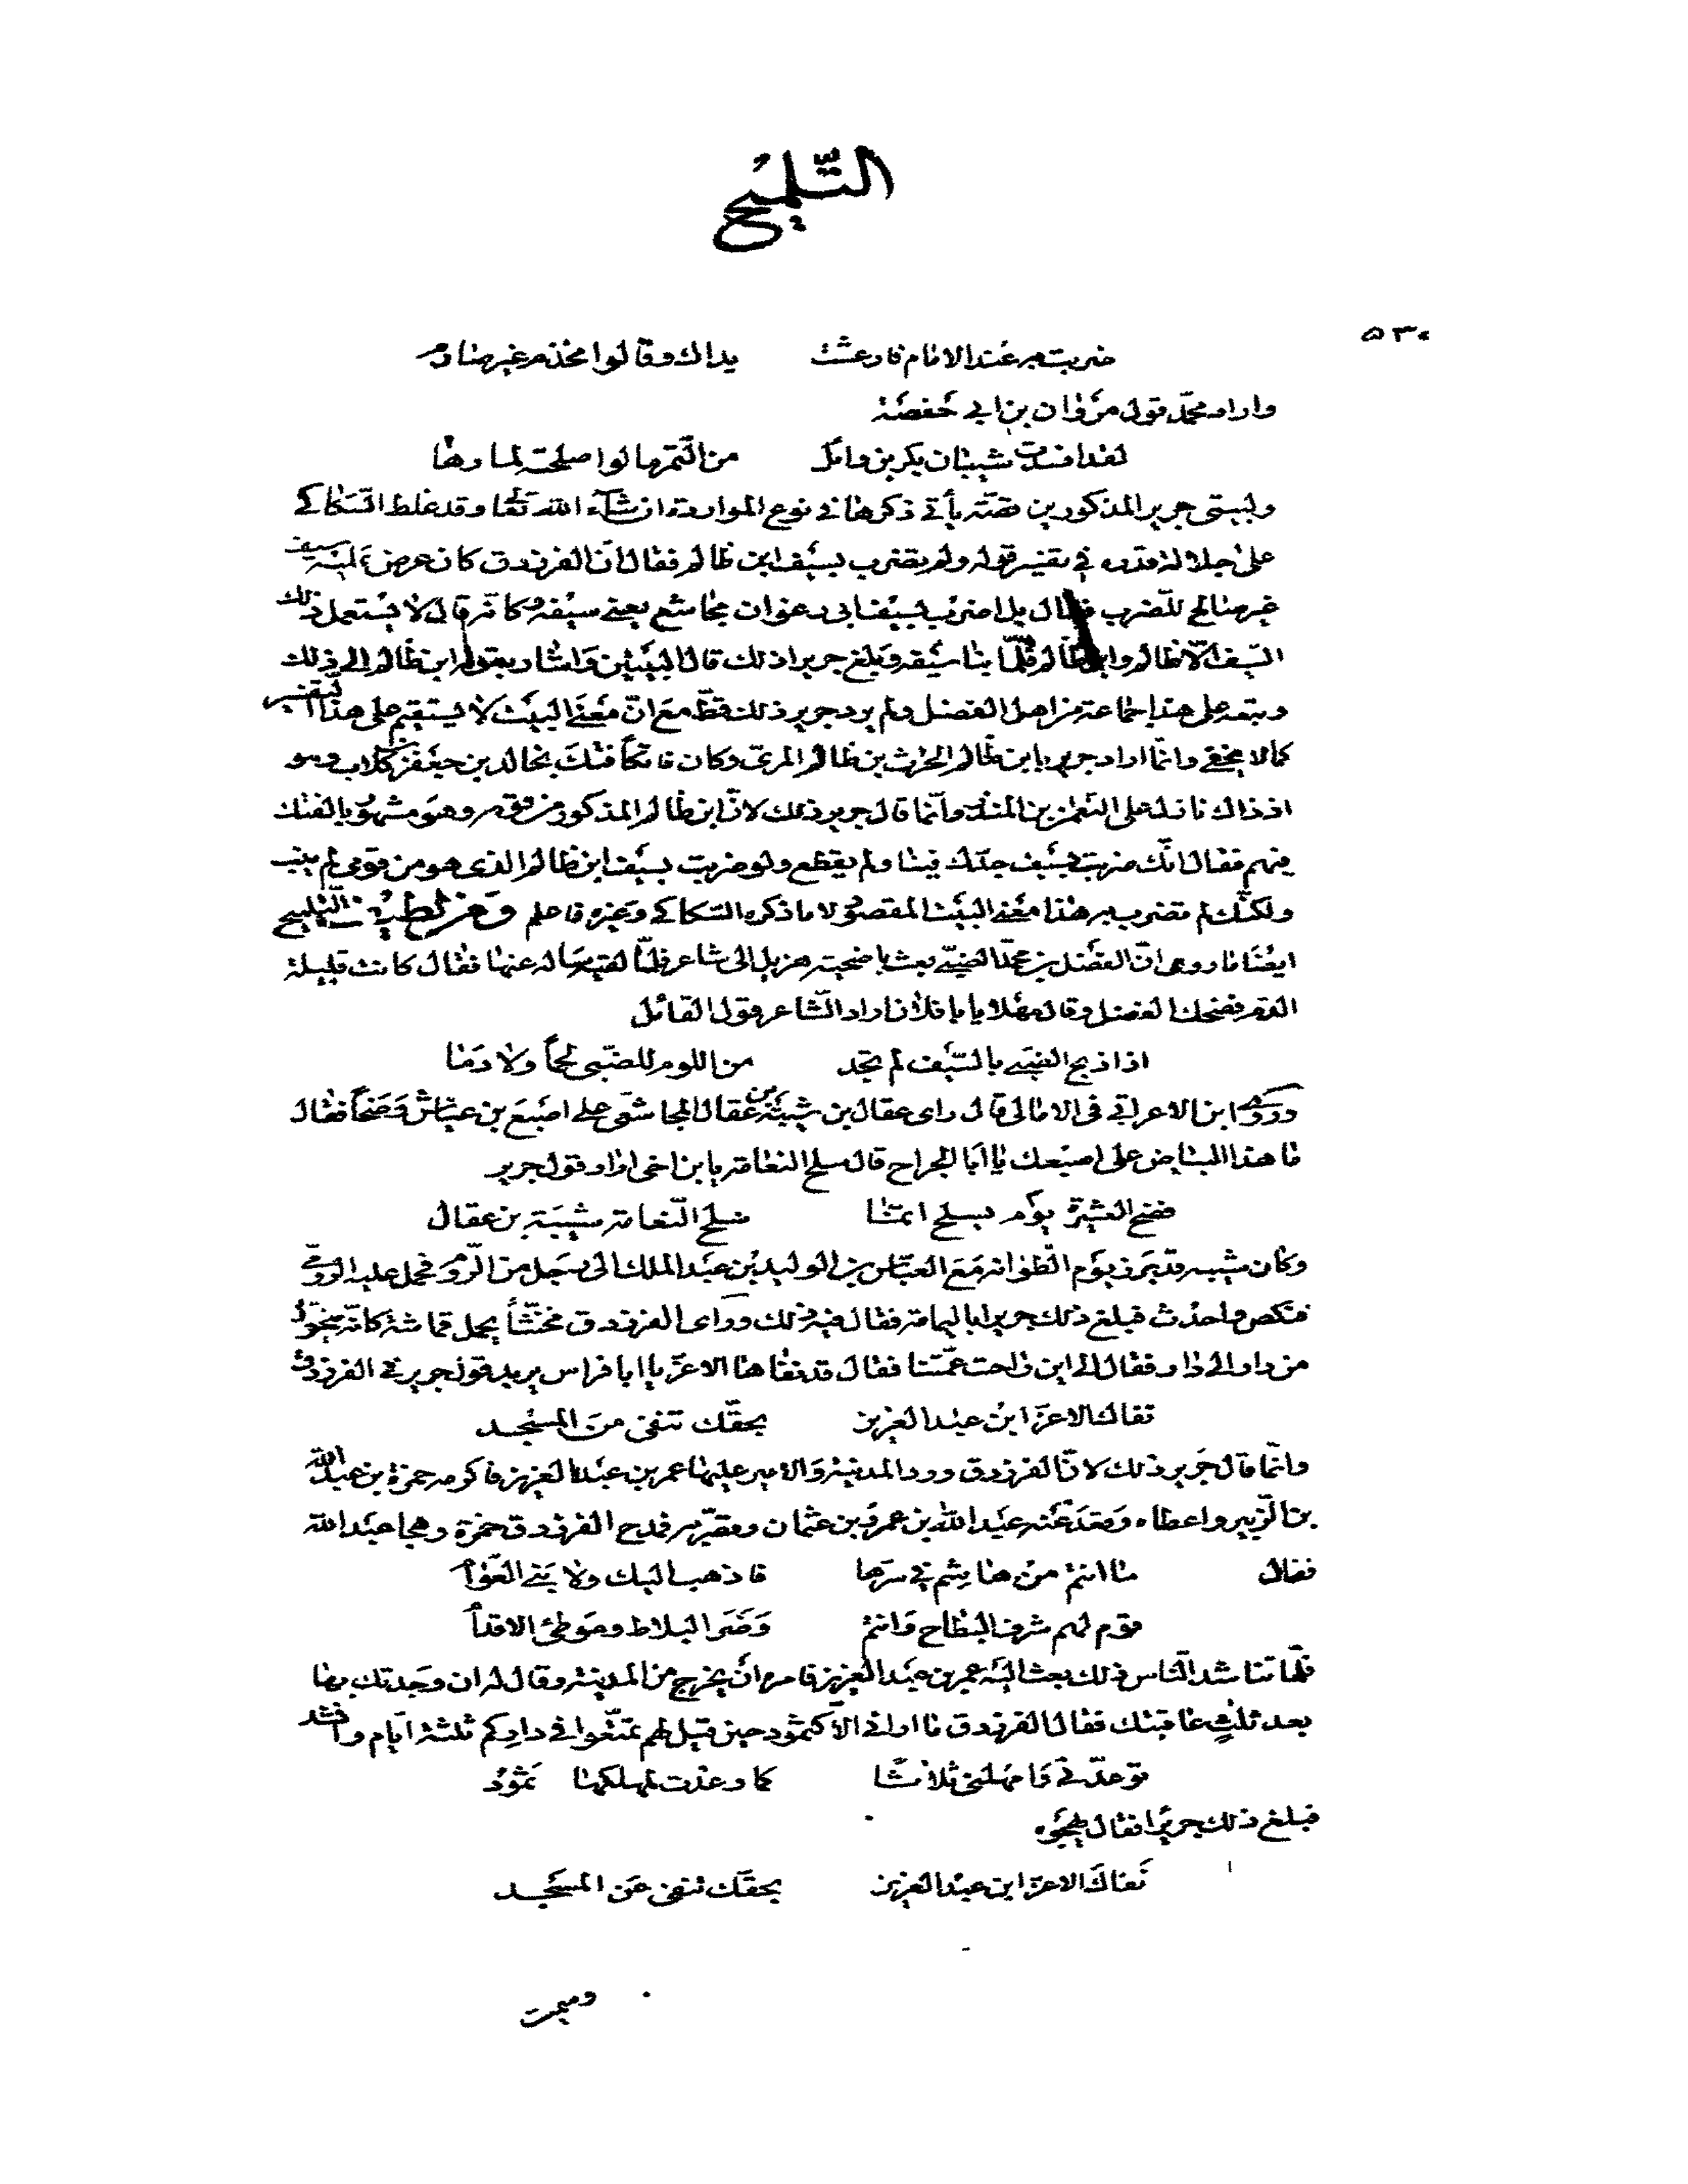 التّلميح
٥٣٠
ضربت به عند الامام فارعشت يداك وقالوا مخذم غير صارم
واراد محمّد قول مروان بن ابي حفصة
لقد افسدت شيبان بكر بن وائل من التّمر ما لوا صلحته لمارها
ولبيتى جرير المذكورين قصّة يأتى ذكرها فى نوع المواردة ان شآء الله تعا وقد غلط السّكاكى
على جلالة قدره فى تفسير قوله ولم يضرب بسيف ابن ظالم فقال انّ الفرزدق كان عرض عليه سيف
غير صالح للضرب فقال بل اضرب بسيف ابى رغوان مجاشع يعنى سيفه وكانّه قال لا يستعمل ذلك
السّيف الّا ظالم وابن ظالم فلمّا نبا سيفه وبلغ جريرا ذلك قال البيتين واشار بقوله ابن ظالم الى ذلك
وتبعه على هذا جماعة من اهل الفضل ولم يرد جرير ذلك قطّ مع انّ معنى البيت لا يستقيم على هذا التفسير
كما لا يخفى وانّما اراد جرير بابن ظالم الحرث بن ظالم المرى وكان فاتكاً فتك بخالد بن جعفر بن كلاب وهو
اذ ذاك نازل على النعمن بن المنذر وانّما قال جرير ذلك لانّ ابن ظالم المذكور من قومه وهو مشهور بالفتك
فيهم فقال انّك ضربت بسيف جدّك فينا ولم يقطع ولو ضربت بسيف ابن ظالم الذى هو من قومى لم ينب
ولكنّك لم تضرب به هذا معنى البيت المقصود لا ما ذكره السّكاكى وغيره فاعلم ومن لطيف التّلميح
ايضا ما روى انّ الفضل بن محمّد الضبّى بعث باضحية هزيل الى شاعر فلمّا لقيه ساله عنها فقال كانت قليلة
الدّم فضحك الفضل وقال مهلا يا با فلان اراد الشّاعر قول القائل
اذا ذبح الضبّى بالسّيف لم تجد من اللوم للضبّى لحماً ولا دما
وروى ابن الاعرابى فى الامالى قال راى عقال بن شبّة بن عقال المجاشعى على اصبع بن عيّاش وضحاً فقال
ما هذا البياض على اصبعك يا ابا الجراح قال سلح النعامة يا بن اخى اراد قول جرير
فضح العشيرة يوم يسلح ائمّا سلح النّعامة شبّة بن عقال
وكان شبه قد برز يوم الطّوانة مع العبّاس بن الوليد بن عبد الملك الى رجل من الرّوم فحمل عليه الرومىّ
فنكص واحدث فبلغ ذلك جريرا باليمامة فقال فيه ذلك وراى الفرزدق مخنّثاً يحمل قماشة كانّه يتحوّل
من دار الى دار فقال الى اين راحت عمّتنا فقال قد نفاها الاغرّ يا ابا فراس يريد قول جرير فى الفرزدق
نفاك الاغرّ ابن عبد العزيز بحقّك تنفى من المسجد
وانّما قال جرير ذلك لانّ الفرزدق ورد المدينة والامير عليها عمر بن عبد العزيز فاكرمه حمزة بن عبد الله
بن الزّبير واعطاه وقعد عنه عبد الله بن عمرو بن عثمان وقصّر به فمدح الفرزدق حمزة وهجا عبد الله
فقال ما انتم من هاشم فى سرّها فاذهب اليك ولا بنى العوّام
قوم لهم شرف البطاح وانتم وضر البلاط وموطئ الاقدام
فلمّا تناشد النّاس ذلك بعث اليه عمر بن عبد العزيز فامره ان يخرج من المدينة وقال له ان وجدتك بها
بعد ثلث عاقبتك فقال الفرزدق ما ارانى الّا كثمود حين قيل لهم تمتّعوا فى داركم ثلثة ايّام وانشد
توعّدنى وامهلنى ثلاثا كما وعدت لمهلكها ثمود
فبلغ ذلك جريرا فقال يهجوه
نفاك الاغرّ ابن عبد العزيز بحقّك تنفى عن المسجد